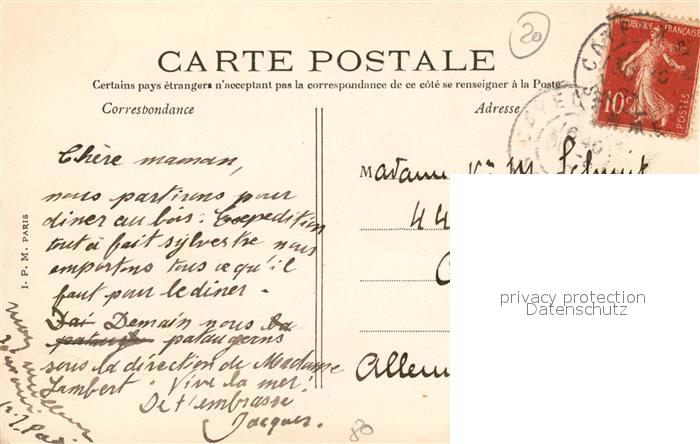 20
CARTE POSTALE
Certains pays étrangers n'acceptant pas la correspondance de ce côté se renseigner à la Poste
Correspondance
Adresse
RÉPUBLIQUE FRANÇAISE
10c
POSTES
CAYEUX
Chère maman,
nous partirons pour
diner au bois. Expedition
tout à fait sylvestre nous
emportons tous ce qu'il
faut pour le diner.
J'ai Demain nous
pataugerons
sous la direction de Madame
Lambert. Vive la mer!
De t'embrasse
Jacques.
Madame
44
Allem
I. P. M. PARIS
80
privacy protection
Datenschutz